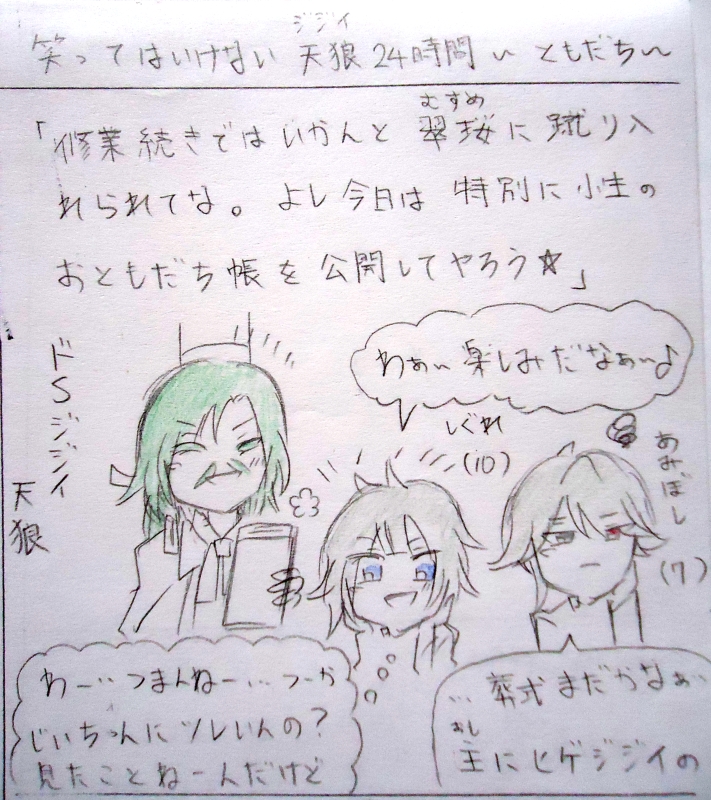 笑ってはいけない 天狼24時間 〜 ともだち〜
ジジイ
「修業続きではいかんと 翠桜に蹴り入
むすめ
れられてな。よし今日は 特別に小生の
おともだち帳を公開してやろう☆」
わぁ〜 楽しみだなぁ〜♪
ドSジジイ
天狼
しぐれ
(10)
あみぼし
(7)
わー… つまんねー… つーか
じいちゃんにツレいんの?
見たことねーんだけど
… 葬式まだかなぁ〜
主にヒゲジジイの
おし